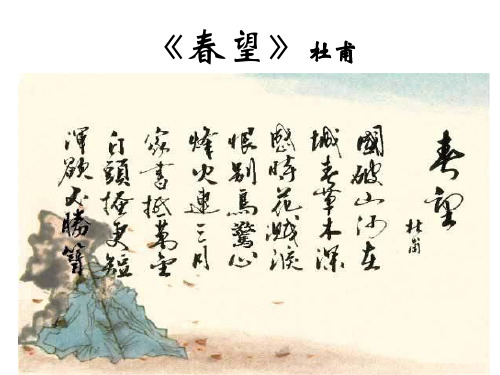 《春望》杜甫
春望
杜甫
國破山河在
城春草木深
感時花濺淚
恨别鳥驚心
烽火連三月
家書抵萬金
白頭搔更短
渾欲不勝簪